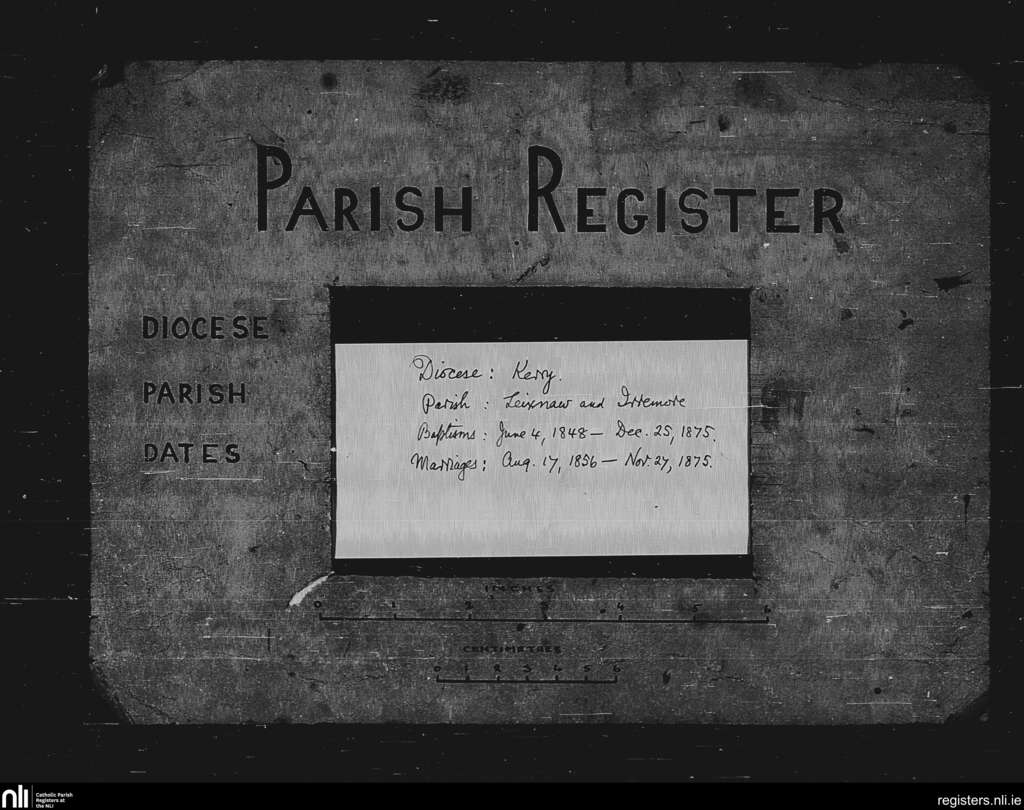 PARISH REGISTER
DIOCESE
PARISH
DATES
Diocese : Kerry.
Parish : Leixnaw and Irremore
Baptisms : June 4, 1848 — Dec. 25, 1875.
Marriages : Aug. 17, 1856 — Nov. 27, 1875.
INCHES
0 1 2 3 4 5 6
CENTIMETRES
0 1 2 3 4 5 6
nli Catholic Parish
Registers at
the NLI
registers.nli.ie